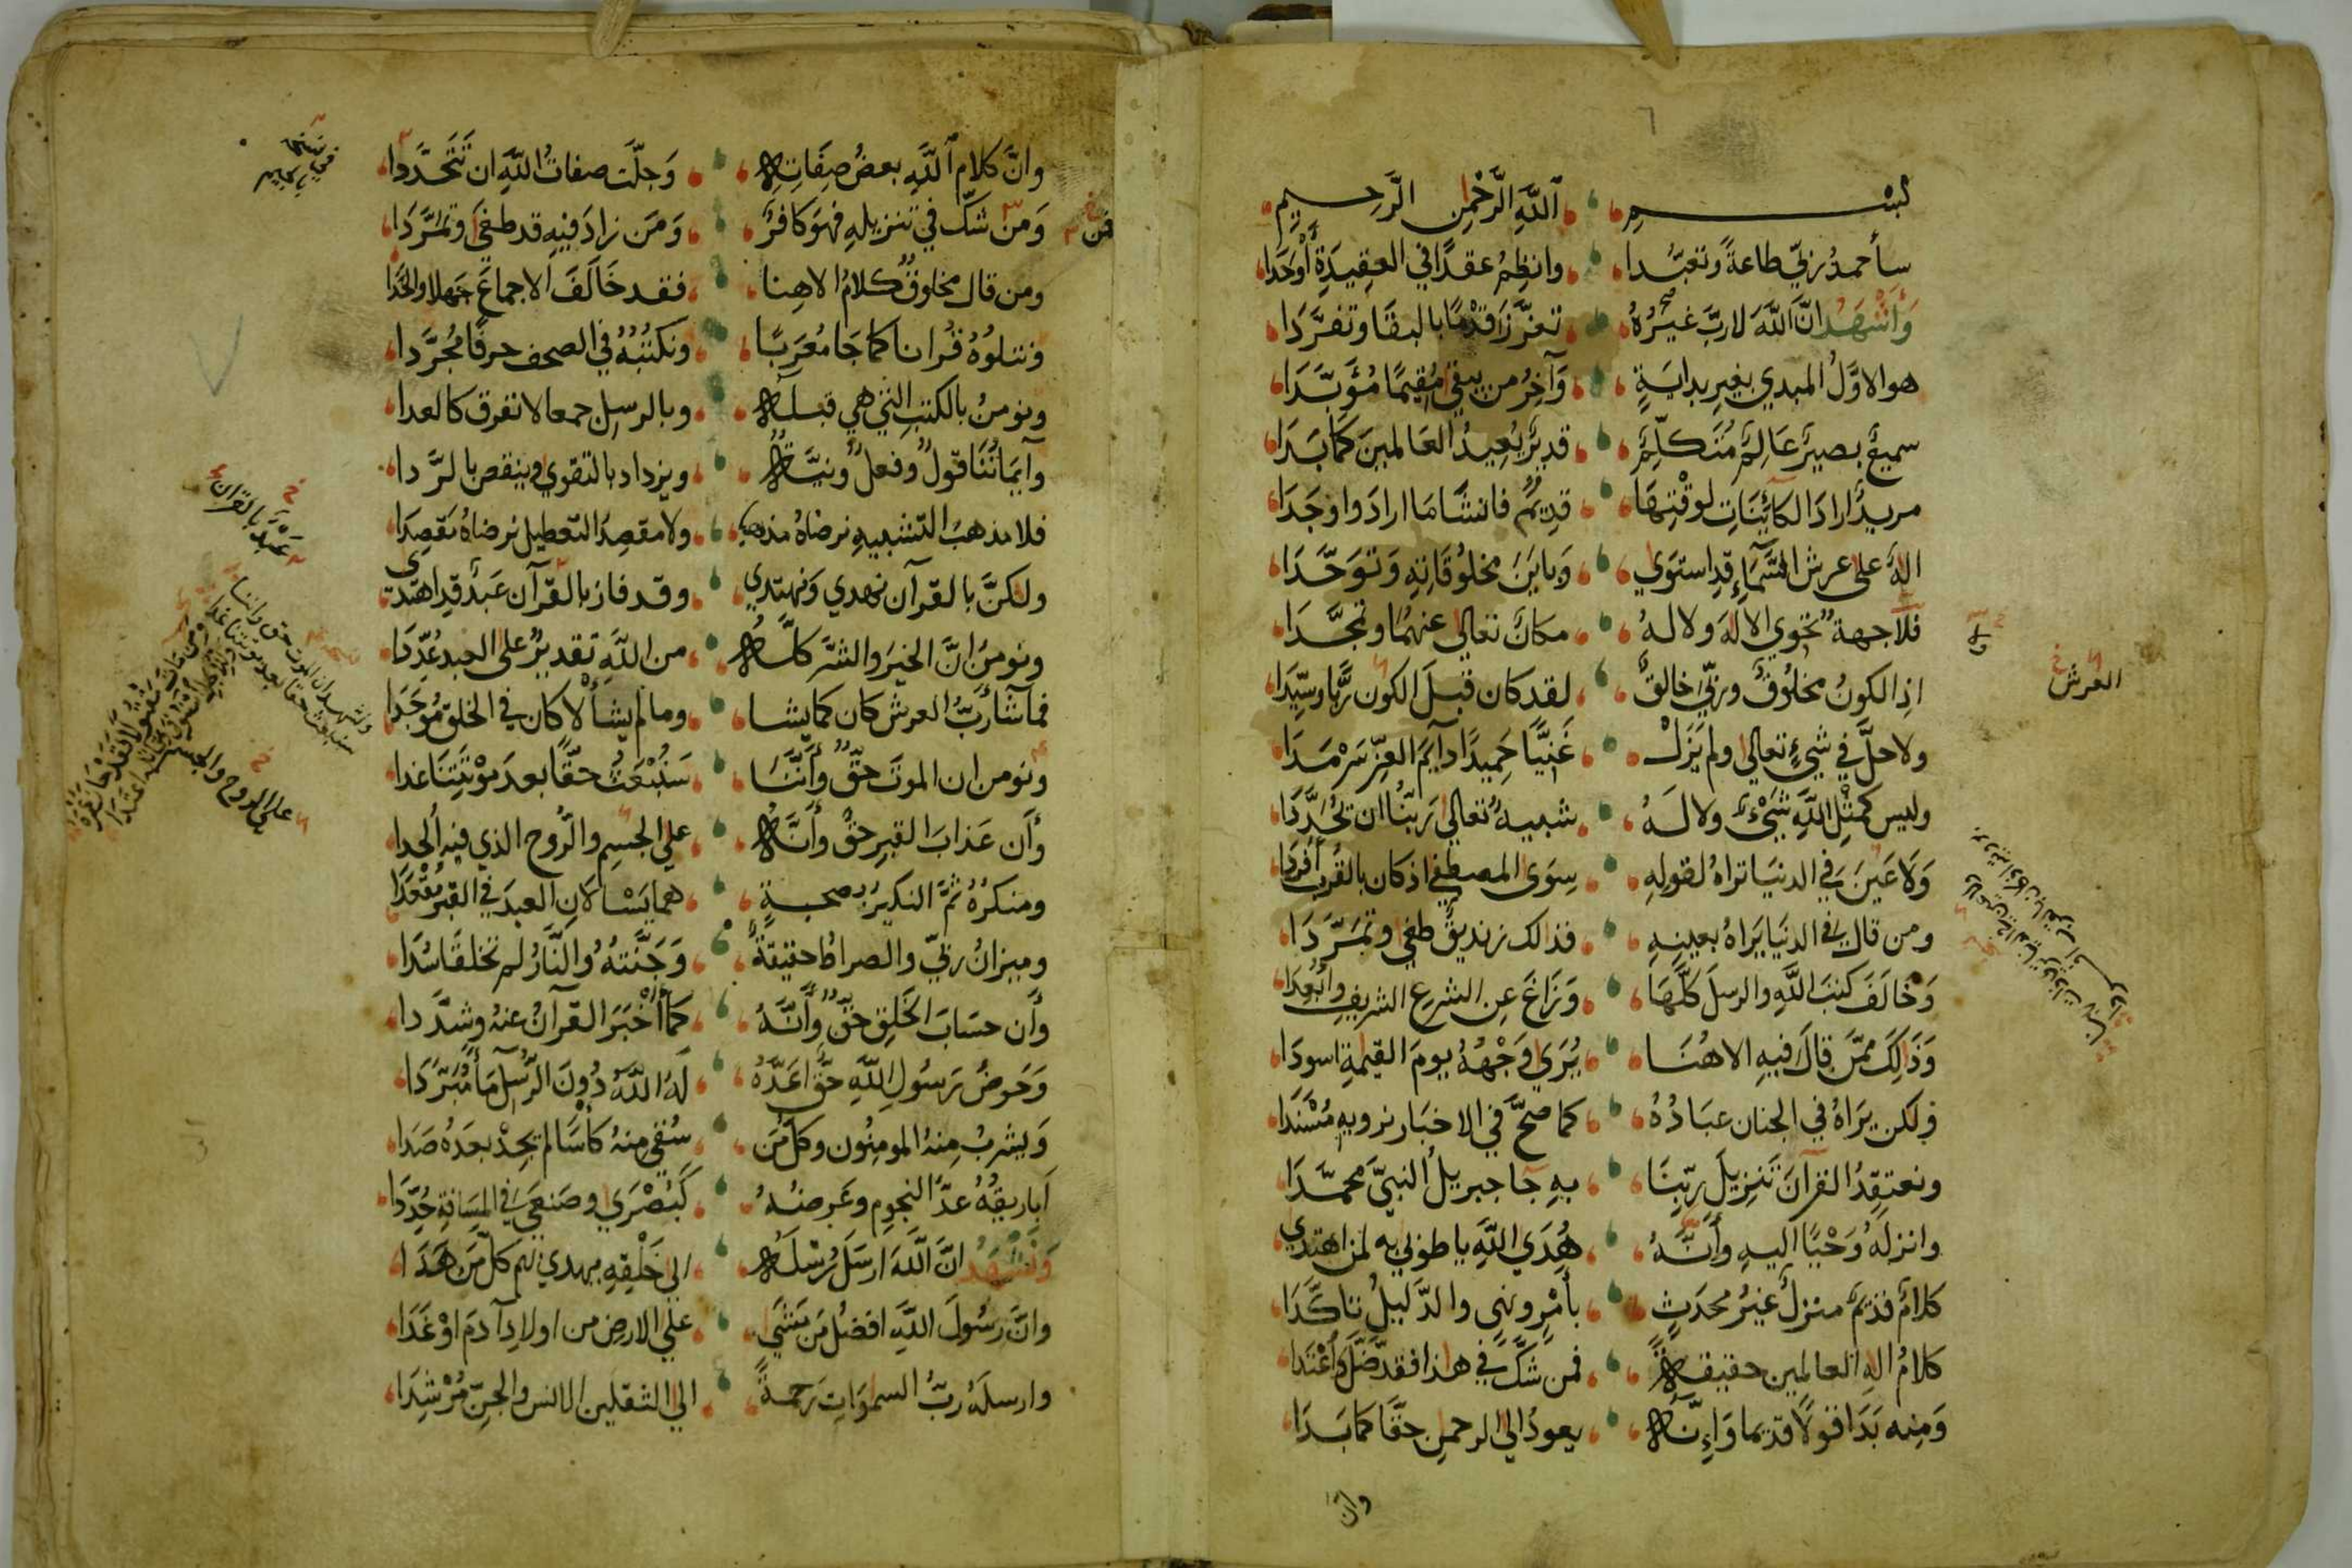 بسم الله الرحمن الرحيم
سأحمدُ ربّي طاعةً وتعبّدا وانظِمُ عقدًا في العقيدةِ أوحَدا
وَأشهَدُ انَّ اللهَ لا ربَّ غيرُهُ تعزّزَ قدْمًا بالبقَا وتفرَّدَا
هو الاوّلُ المبدي بغيرِ بدايةٍ وَآخِرُ من يبقى مُقيمًا مُؤَبَّدَا
سميعٌ بصيرٌ عَالِمٌ مُتَكلِّمٌ قديرٌ يُعِيدُ العَالمينَ كَمَا بَدَا
مريدٌ ارادَ الكائِنَاتِ لوقْتِهَا قدِيمٌ فانشَا مَا ارادَ واوجَدَا
الهٌ على عرش السَّمَآءِ قدِ استوَى وَبايَنَ مخلُوقَاتِهِ وَتوَحَّدَا
فلا جهةٌ تحوي الالهَ ولا لهُ مكانٌ تعالى عنهُمَا وتمجَّدَا
اذِ الكونُ مخلُوقٌ وربّي خالقٌ لقد كان قبلَ الكون ربًّا وسيّدَا
ولا حلَّ في شيءٍ تعالى ولم يَزَلْ غَنِيًّا حَمِيدًا دآيمَ العِزّ سَرْمَدَا
وليس كمثْلِ اللهِ شَيْءٌ ولا لَهُ شبيهٌ تعالى رَبّنُا ان تحُدَّدَا
وَلَا عَينَ في الدنيَا تراهُ لقولِهِ سِوَى المصطفى اذ كان بالقُرب أُفرِدَا
ومن قال في الدنيَا يَرَاهُ بعينِهِ فذلك زنديقٌ طغى وتمَرَّدَا
وَخَالَفَ كتبَ اللهِ والرسلَ كلَّهَا وَزَاغَ عن الشرعِ الشريفِ وأبْعِدَا
وَذَالِكَ ممَّن قالَ فيهِ الاهُنَا يُرَى وَجْهُهُ يومَ القيمةِ اسودَا
ولكن يرَاهُ في الجنان عبَادُهُ كما صحَّ في الاخبَار نرويهِ مُسْنَدَا
ونعتقِدُ القرآنَ تَنزِيلَ ربّنَا بهِ جَا جبريلُ النبيَّ محمَّدَا
وانزلَهُ وَحْيًا اليهِ وأنَّهُ هُدَى اللهِ يا طوبى به لمن اهتدى
كلامٌ قديمٌ منزلٌ غيرُ محدَثٍ بأمْرٍ ونهيٍ والدَّليلُ تاكَّدَا
كلامُ الهِ العالمين حقيقةً فمن شكَّ في هذا فقد ضلَّ وَاعْتَدَا
وَمِنه بَدَا قولًا قديمًا وَإِنَّهُ يعودُ الى الرحمنِ حقًّا كمَا بَدَا
وانّ
العرش
وانَّ كلام اللهِ بعضُ صِفَاتِهِ وَجلَّت صفاتُ اللهِ ان تَتَحَدَّدا
وَمَن شكّ في تنزيلهِ فهوَ كافرٌ وَمَن زادَ فيهِ قد طغى وتمَرَّدَا
فمن
ومن قال مخلوقٌ كلامُ الاهِنا فقد خَالَفَ الاجماعَ جَهلا والحَدَا
ونتلوُهُ قُرانا كما جَا مُعَربًا ونكتُبُهُ في الصحف حرفًا مجُرَّدا
ونومنُ بالكتبِ التي هي قبلهُ وبالرسلِ جمعا لا نفرق كالعدا
وآيمَانُنَا قولٌ وفعلٌ ونيّةٌ ويزداد بالتقوى وينقص بالرَّدا
فلا مذهبَ التشبيهِ نرضاهُ مذهبًا ولا مقصِدَ التعطيل نرضاهُ مَقصِدَا
ولكنَّ بالقرآن نهدي وَنهتدي وقد فاز بالقرآن عَبدٌ قدِ اهتدى
ونومنُ انَّ الخيرَ والشرَّ كلَّهُ من اللهِ تقديرٌ على العبدِ عُدِّدَا
فما شَآ رَبُّ العرش كان كما يشا وما لم يشأ لا كان في الخلقِ مُوجَدَا
ونومن ان الموتَ حقٌّ وأنَّنَا سَنُبْعَثُ حقًّا بعدَ موْتتِنَا غدا
وأَن عَذابَ القبرِ حقٌّ وأنَّهُ على الجسمِ والرُّوح الذي فيهِ أُلحِدا
ومنكرُهُ ثمَّ النكيرُ بصحبةٍ هما يسْالانِ العبدَ في القبرِ مُقْعَدَا
وميزانُ ربّي والصراطُ حقيقةً وَجَنَّتهُ والنَّارُ لم تخلقَا سُدَا
وأن حسَابَ الخَلقِ حقٌّ وأَنَّهُ كمَا أخْبَرَ القرآنُ عنهُ وشدَّدا
وَحَوضُ رَسُولِ اللهِ حقًّا عَدَّهُ لَهُ اللهُ دُونَ الرُّسلِ مَآءً مُبَرَّدَا
وَيشربُ مِنهُ المومِنُون وكلّ مَن سُقي مِنهُ كأسًا لم يجِدْ بعدَهُ صَدَا
أباريقُهُ عدُّ النجومِ وعَرضُهُ كَبُصْرَى وصَنعَى في المسَافةِ حُدِّدَا
وَنشهَدُ انَّ اللهَ ارسلَ رُسْلَهُ الى خَلْقِهِ يهدي بهم كلَّ مَن هَدَا
وانَّ رَسُولَ اللهِ افضلُ مَن مَشَى على الارضِ من اولادِ آدَمَ اوْ غَدَا
وارسلَهُ ربُّ السموَاتِ رَحمةً الى الثقلين الانس والجنّ مُرْشِدَا
عَبْدٌ بالقران
على الروح والجسم